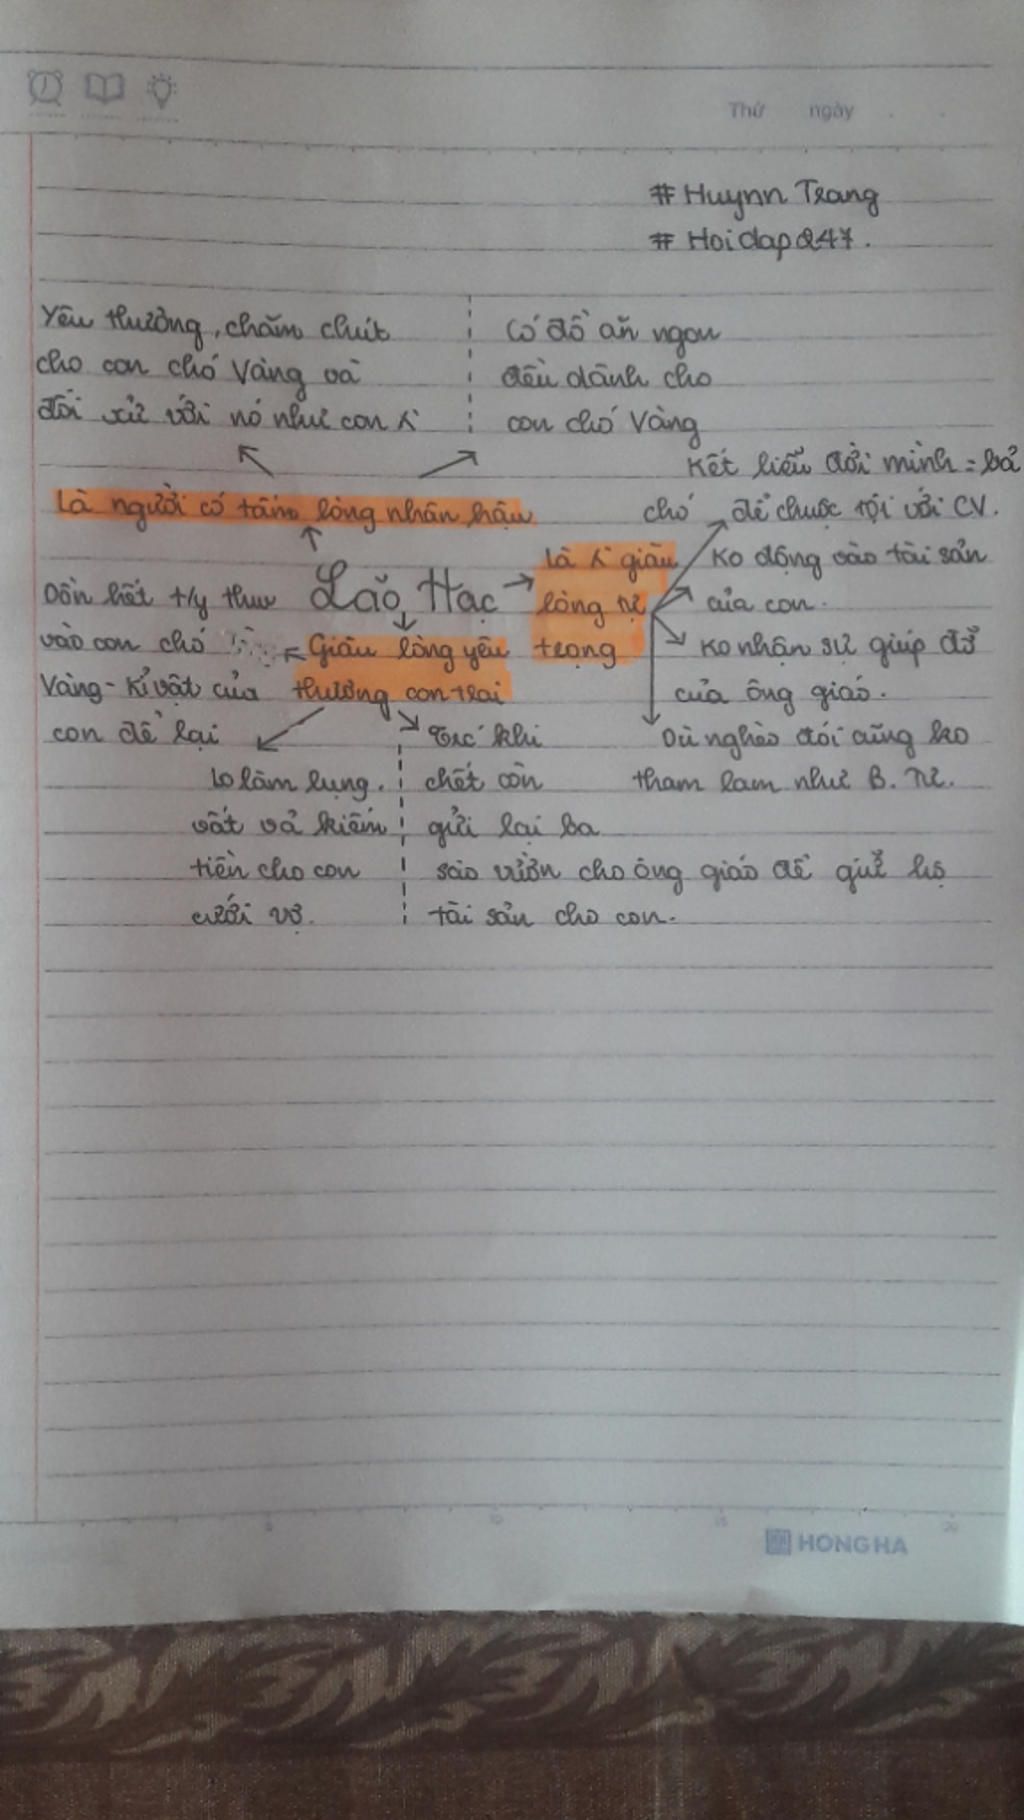 Thứ ngày
# Huynn Trang
# Hoidap247.
Yêu thương, chăm chút
cho con chó Vàng và
đối xử với nó như con
Có đồ ăn ngon
đều dành cho
con chó Vàng
Là người có tấm lòng nhân hậu
Lão Hạc
là giàu
lòng tự
trọng
Kết liễu đời mình = bả
chó để chuộc tội với CV.
Ko động vào tài sản
của con.
Ko nhận sự giúp đỡ
của ông giáo.
Dù nghèo đói cũng ko
tham lam như B. Tư.
Giàu lòng yêu
thương con trai
Dồn hết t/y thw
vào con chó
Vàng - kỉ vật của
con để lại
lo làm lụng,
vất vả kiếm
tiền cho con
cưới vợ.
Trc' khi
chết còn
gửi lại ba
sào vườn cho ông giáo để giữ hộ
tài sản cho con.
5 10 15 20
HONG HA